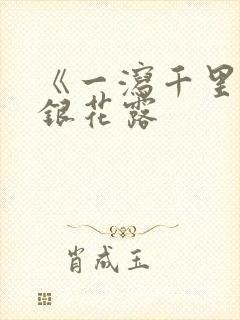 《一泻千里
银花露
肖成玉